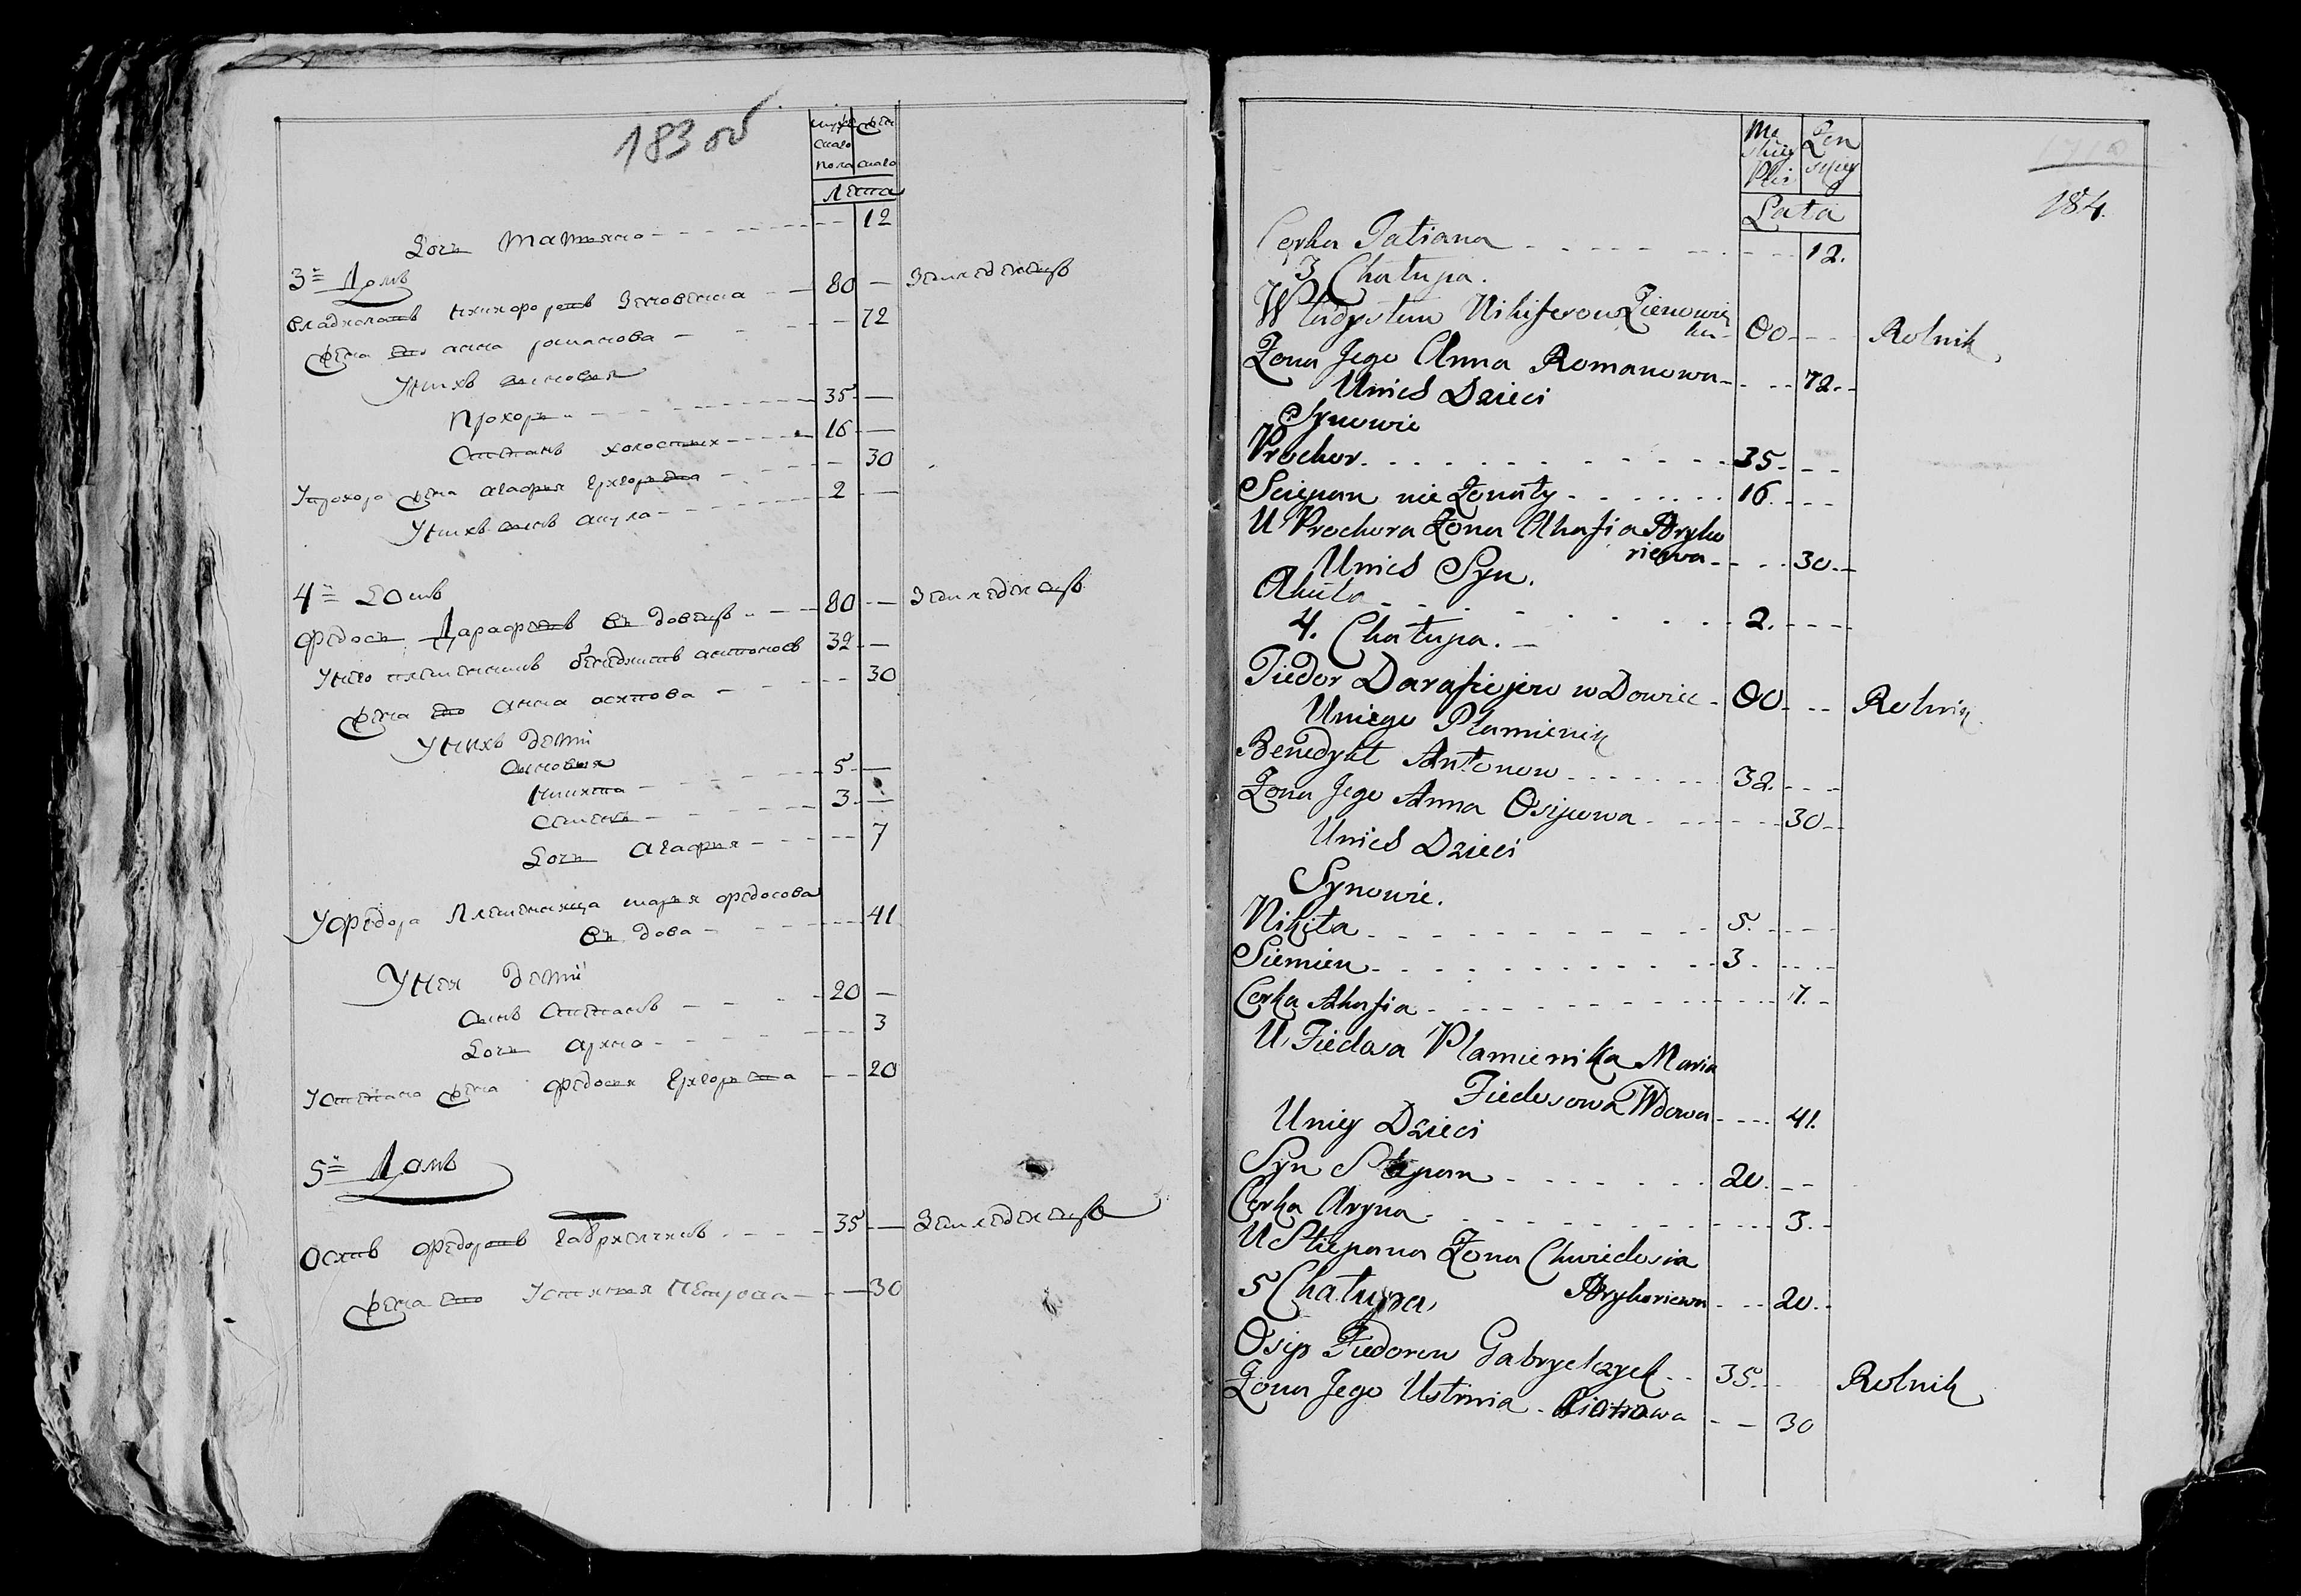 183 об
мужескаго пола
женскаго
Лета
Дочь Татьяна 12
3ъ Домъ
Владиславъ Никифоровъ Зеновенка 80 — Земледелецъ
Жена его Анна Романова 72
У нихъ сыновья
Прохоръ 35 —
Степанъ холостых 16 —
У Прохора жена Агафья Григорьева 30
У нихъ сынъ Акула 2 —
4ъ Домъ
Федосъ Дарафеевъ вдовецъ 80 — Земледелецъ
У него племянникъ Бенедиктъ Антоновъ 32 —
Жена его Анна Осипова 30
У нихъ дети
Сыновья
Никита 5 —
Семенъ 3 —
Дочь Агафья 7
У Федора Племенница Марья Федосова
вдова 41
У нея дети
Сынъ Степанъ 20 —
Дочь Арина 3
У Степана жена Федосья Григорьева 20
5ъ Домъ
Осипъ Федоровъ Габриелчикъ 35 — Земледелецъ
Жена его Устинья Петрова 30
184.
Męskiey Płci
Żenskiey
Lata
Corka Tatiana 12.
3 Chałupa.
Władysław Nikiferow Zienowien
ka 80 Rolnik
Żona Jego Anna Romanowa 72.
U nich Dzieci
Synowie
Prochor 35.
Sciepan nie Żonaty 16.
U Prochora Żona Ahafia Hryho
riewa 30.
U nich Syn.
Akuła 2.
4. Chałupa.
Fiedor Darafiejew w Dowiec 80 Rolnik
U niego Plamienik
Benedykt Antonow 32.
Żona Jego Anna Osipowa 30
U nich Dzieci
Synowie.
Nikita 5.
Siemien 3.
Corka Ahafia 7.
U Fiedosa Plamienika Maria
Fiedosowa Wdowa 41.
U niey Dzieci
Syn Stepan 20.
Corka Aryna 3.
U Stiepana Żona Chwiedosia
Hryhoriewa 20.
5 Chałupa,
Osip Fiedorow Gabryelczyk 35. Rolnik
Żona Jego Ustinia Piotrowa 30